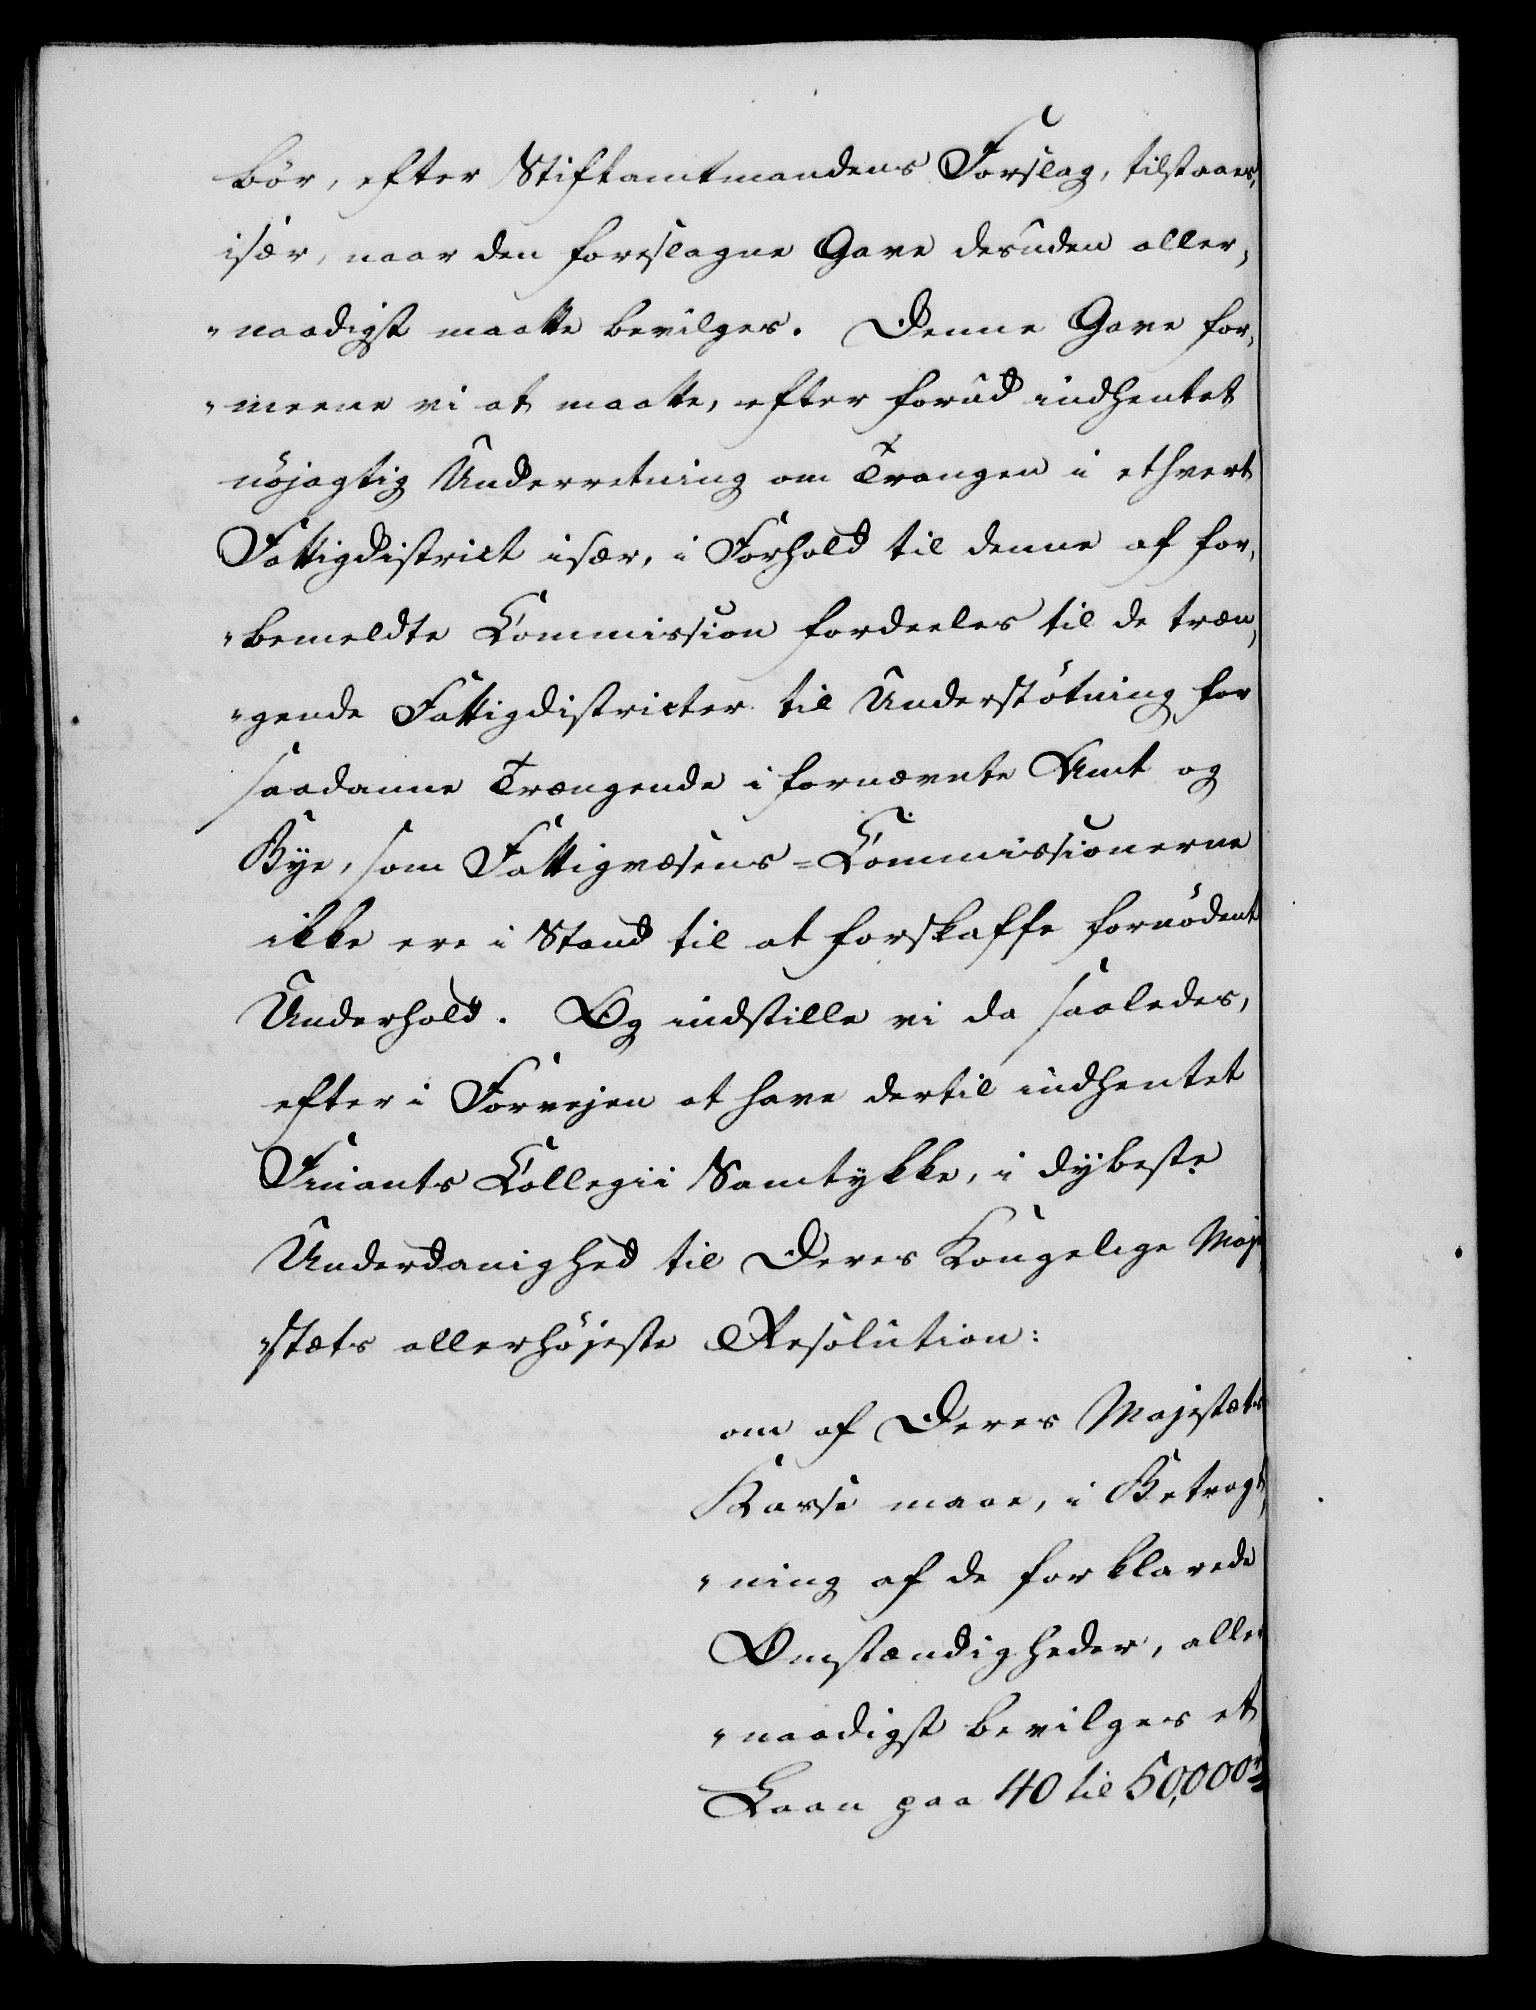 bör, efter Stiftamtmandens Forslag, tilstaaes,
især, naar den foreslagne Gave desuden aller,
„naadigst maatte bevilges. Denne Gave for,
„meene vi at maatte, efter forud indhentet
nöjagtig Underretning om Trangen i ethvert
Fattigdistrict især, i Forhold til denne af for,
„bemeldte Commission fordeeles til de træn,
„gende Fattigdistricter til Understötning for
saadanne Trængende i fornævnte Amt og
Bÿe, som Fattigvæsens-Commissionerne
ikke ere i Stand til at forskaffe fornödent
Underhold. Og indstille vi da saaledes,
efter i Forvejen at have dertil indhentet
Finants Collegii Samtykke, i dÿbeste
Underdanighed til Deres Kongelige Maje
„stæts allerhöjeste Resolution:
om af Deres Majestæts
Kasse maae, i Betragt,
„ning af de forklarede
Omstændigheder, aller
„naadigst bevilges et
Laan paa 40 til 50,000 rd